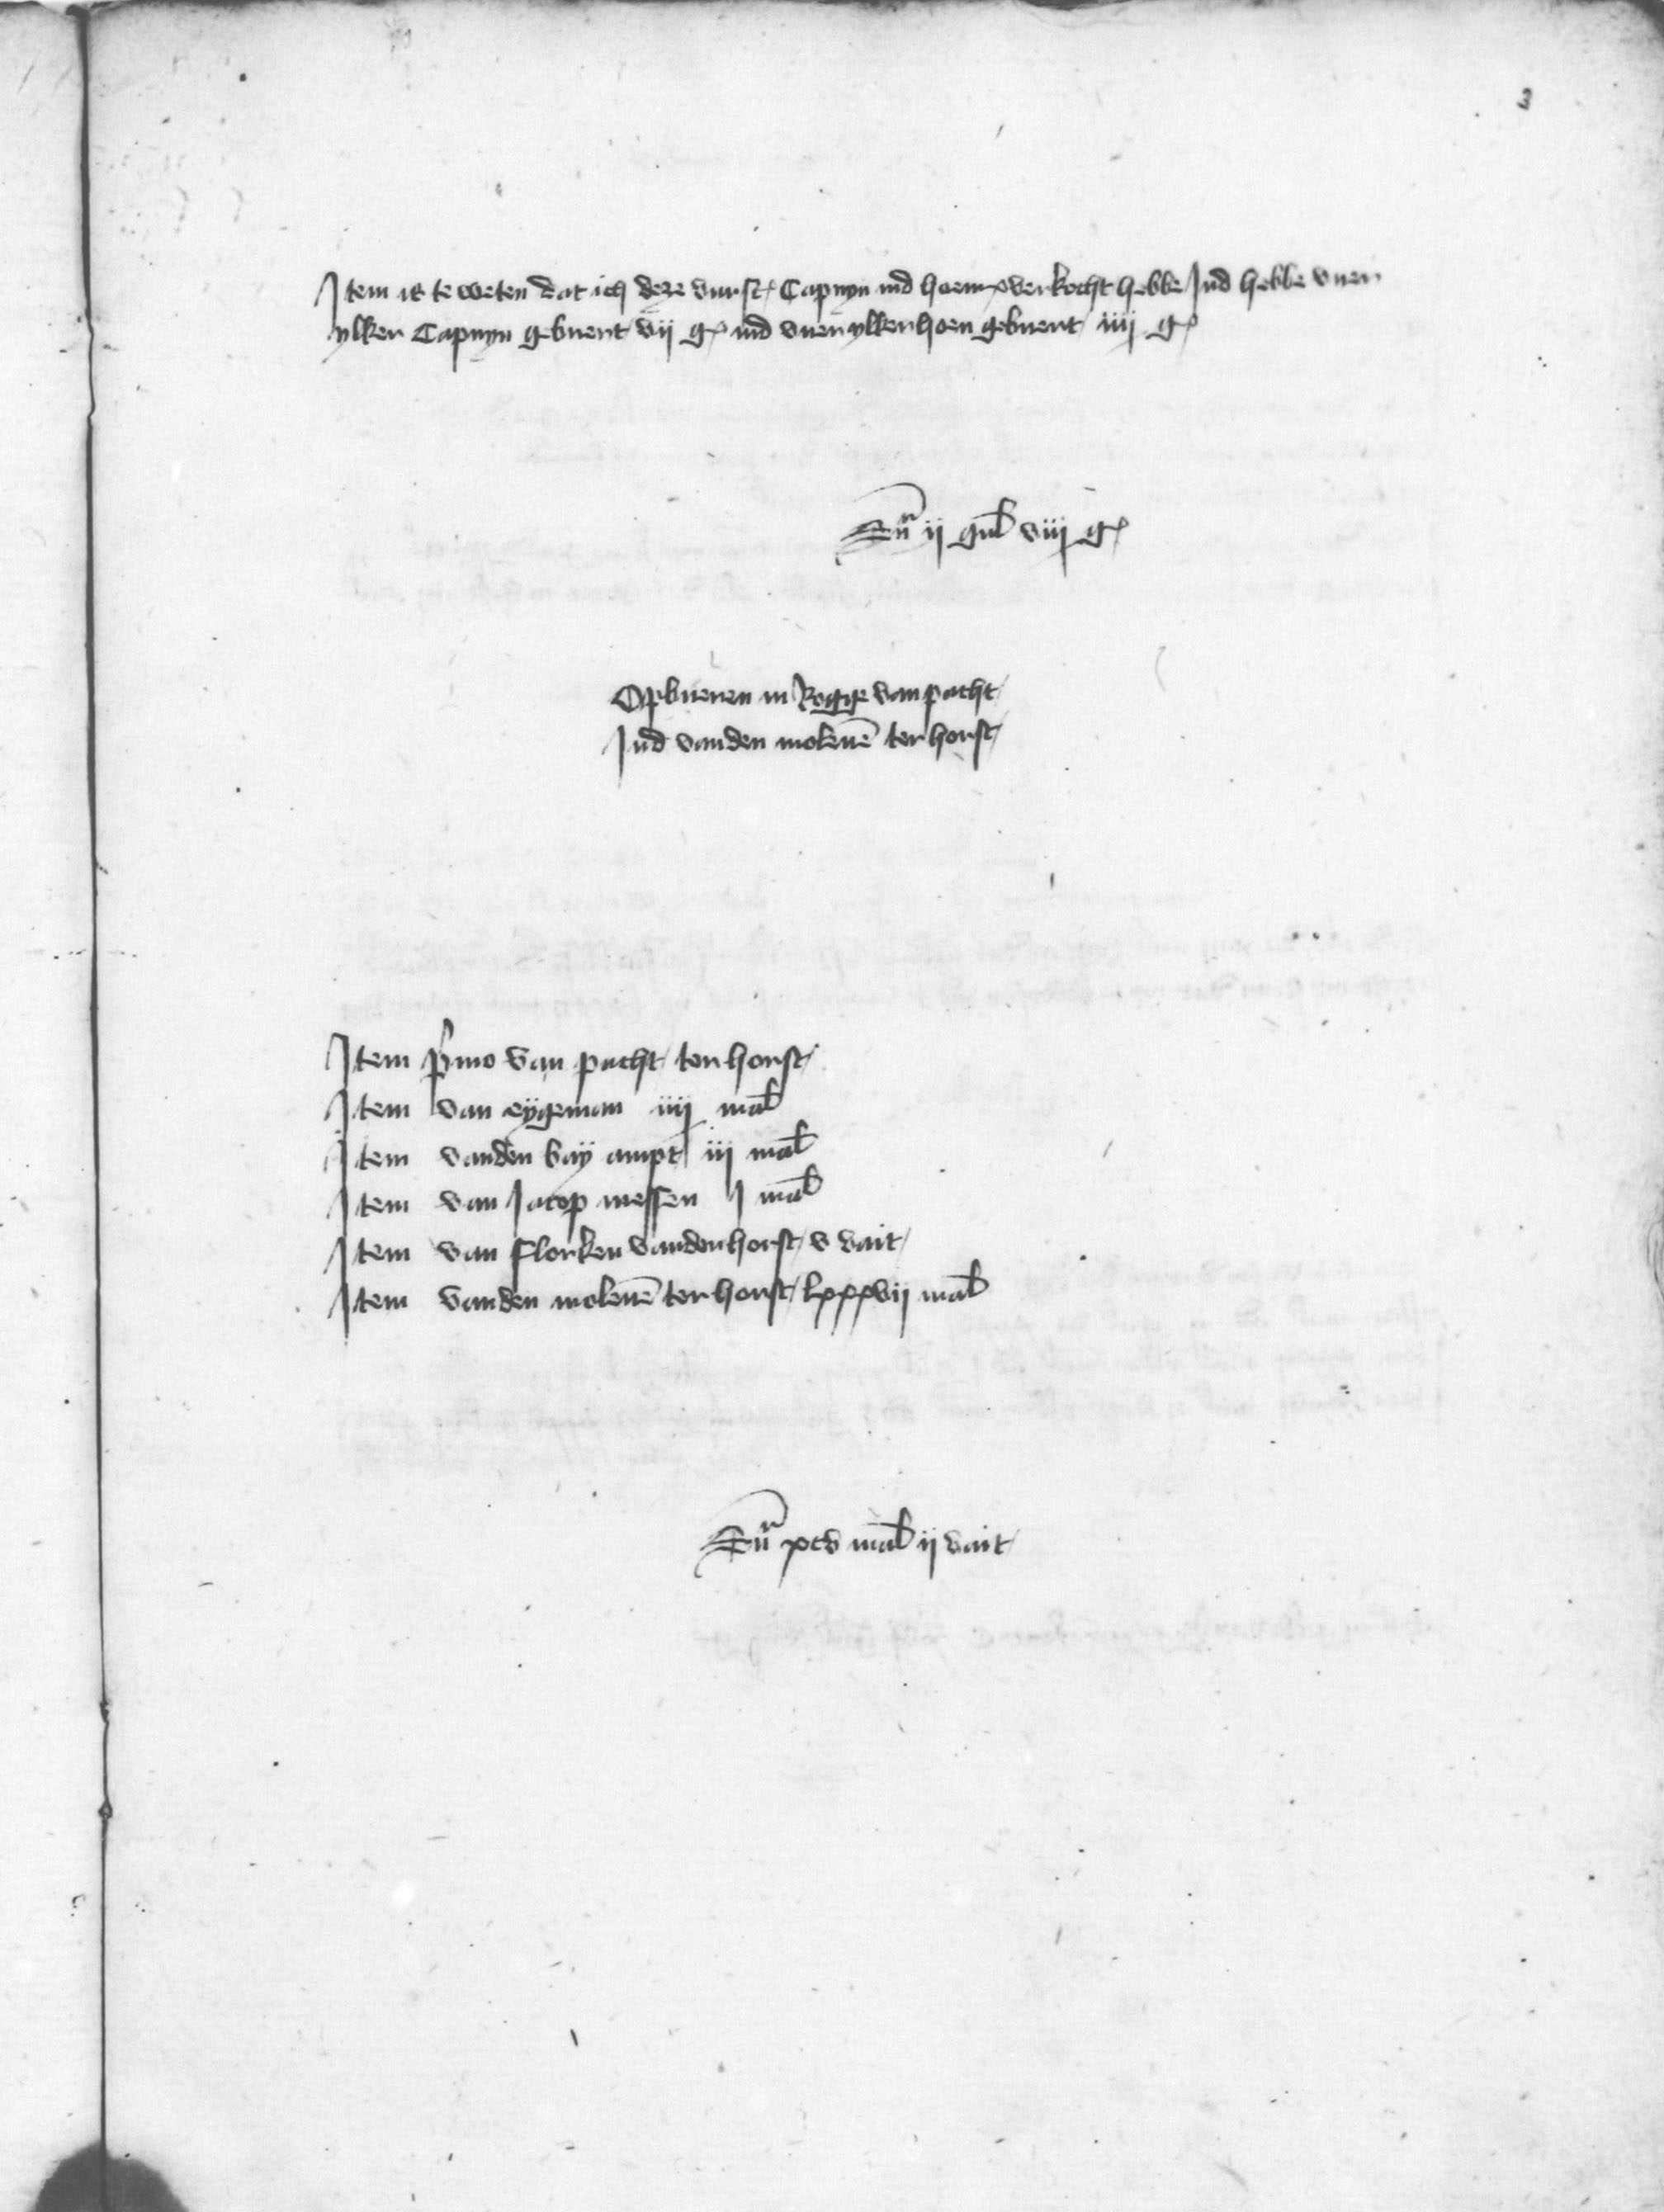 3
Item is te weten dat ich deze vurst Capuyn ind hoenre verkocht hebbe Ind hebbe vuer
ylker Capuyn gebuert vij gr ind vuer ylker hoen gebuert iiij gr
Sūᵃ ij guld viij gr
Opbueren in Rogge van pacht
Ind vanden molenē ter horst
Item p̓mo van pacht ter horst
Item van eygeman iiij mald
Item vanden bay ampt iij mald
Item van Jacop messen j mald
Item van florken vander horst v vait
Item vanden molenē ter horst lxxxvij mald
Sūᵃ xcv mald ij vait